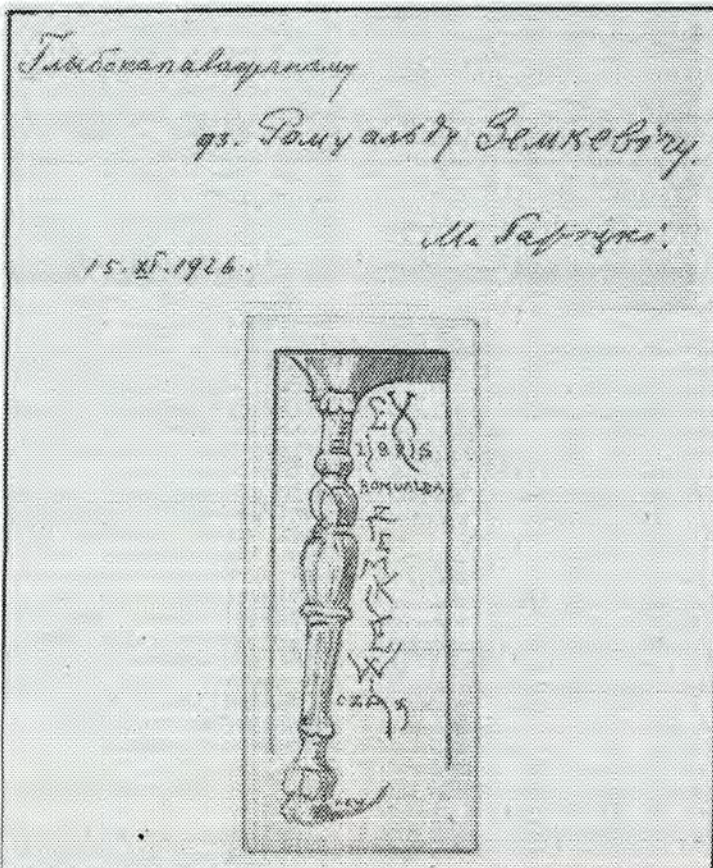 Глыбокапаважанаму
дз. Рамуальду Земкевічу.
М. Гарэцкі.
15.XI.1926.
EX
LIBRIS
ROMUALDA
ZIEMKIEWICZA